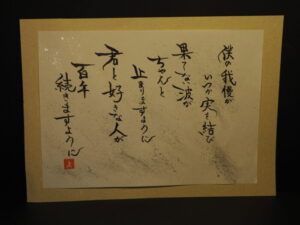 僕の我慢が
いつか実を結び
果てない波が
ちゃんと
止まりますように
君と好きな人が
百年
続きますように